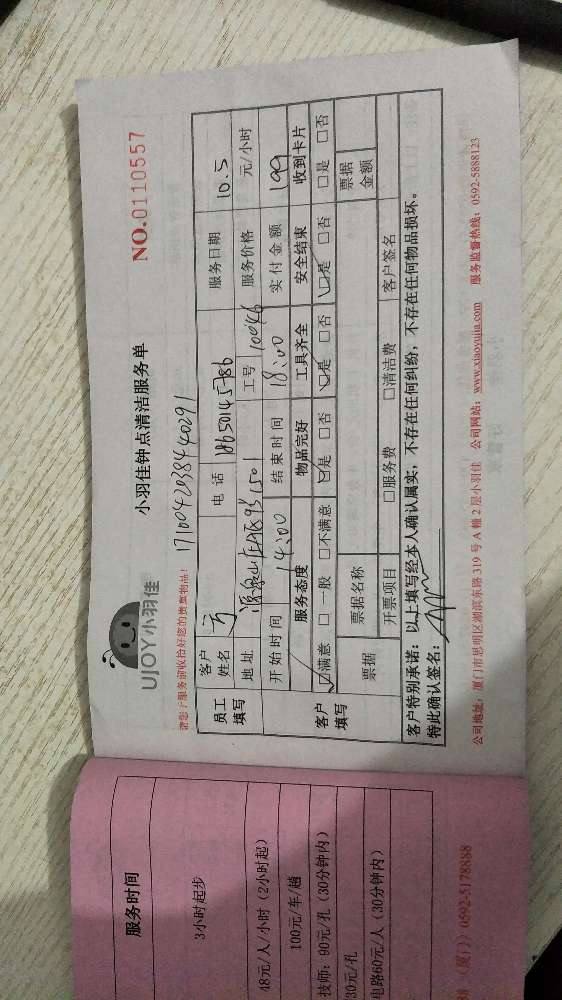 UJOY小羽佳
小羽佳钟点清洁服务单
NO.0110557
请您于服务前收拾好您的贵重物品!
17100420384440291
员工填写 客户姓名 电话 18650145786 服务日期 10.5
地址 服务价格 元/小时
工号 10046
客户填写 开始时间 14:00 结束时间 18:00 实付金额 199
服务态度 物品完好 工具齐全 安全结束 收到卡片
☑满意 □一般 □不满意 ☑是 □否 ☑是 □否 ☑是 □否 □是 □否
票据 票据名称 票据金额
开票项目 □服务费 □清洁费 客户签名
客户特别承诺:以上填写经本人确认属实,不存在任何纠纷,不存在任何物品损坏。
特此确认签名:
公司地址:厦门市思明区湖滨东路319号A幢2层小羽佳 公司网站:www.xiaoyujia.com 服务监督热线:0592-5888123
服务时间
3小时起步
48元/人/小时(2小时起)
100元/车/趟
技师:90元/孔(30分钟内)
30元/孔
电路60元/人(30分钟内)
(厦门)0592-5178888